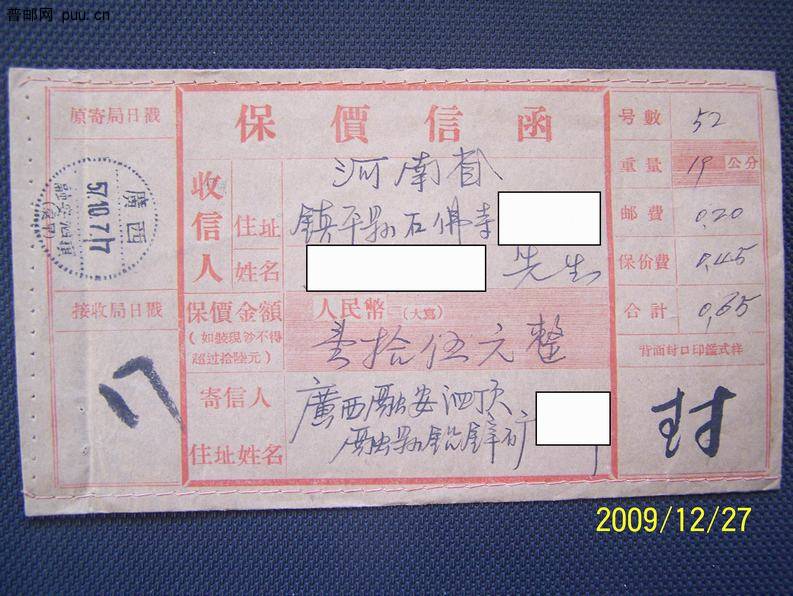 普邮网 puu.cn
原寄局日戳
廣西
57.10.7.17
接收局日戳
17
保價信函
收信人
河南省
住址 鎮平縣石佛寺
姓名 先生
保價金額
(如裝現鈔不得
超过拾陸元)
人民幣(大寫)
壹拾伍元整
寄信人
住址姓名
廣西融安泗顶
融縣鉛鋅矿
号數 52
重量 19 公分
邮費 0.20
保价費 0.45
合計 0.65
背面封口印鑑式样
封
2009/12/27